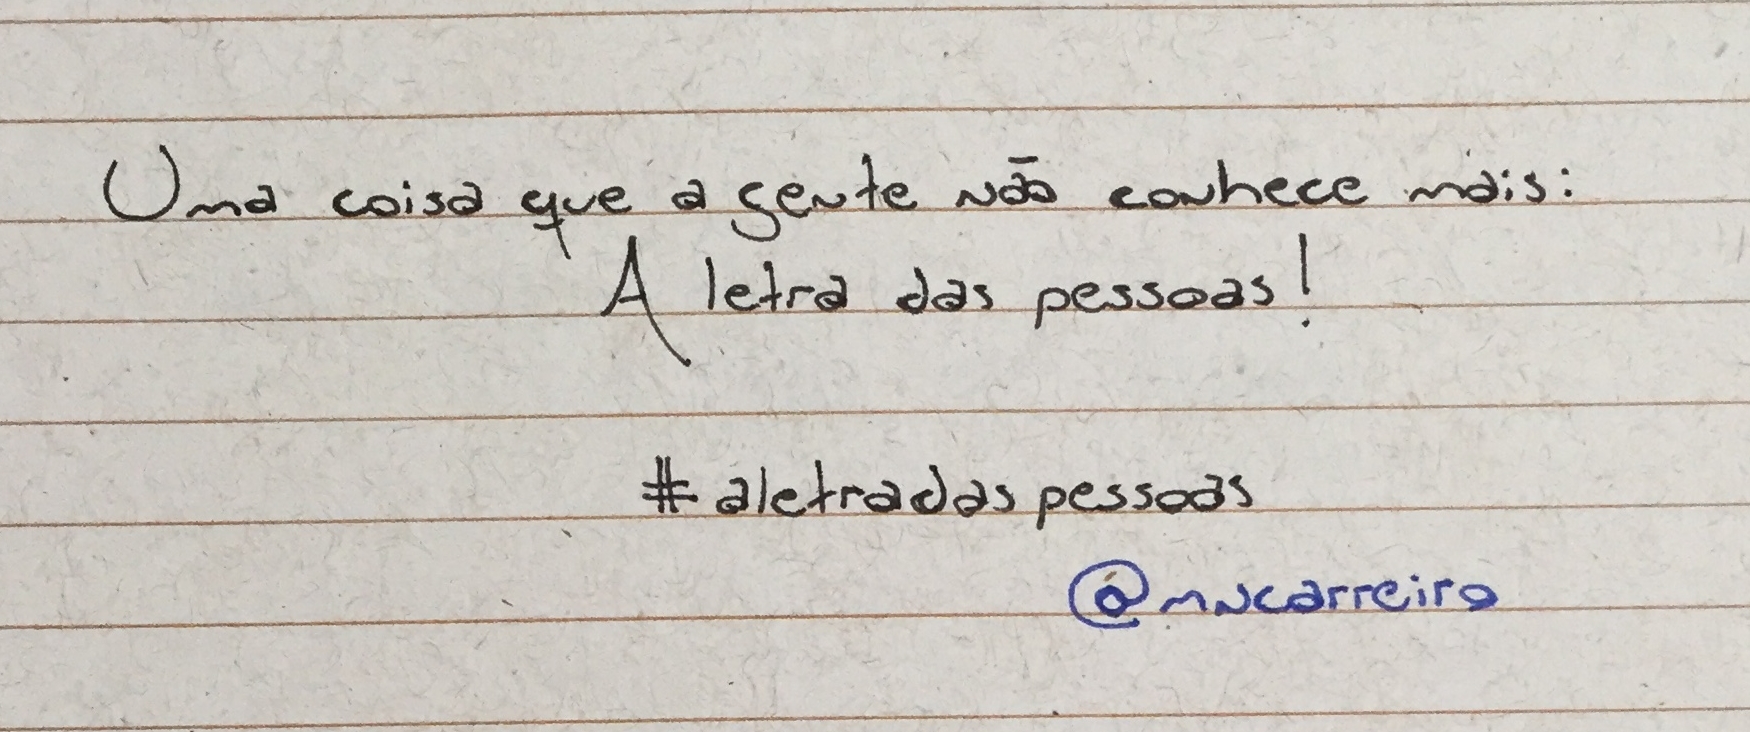 Uma coisa que a gente não conhece mais:
A letra das pessoas!
#aletradaspessoas
@mncarreiro